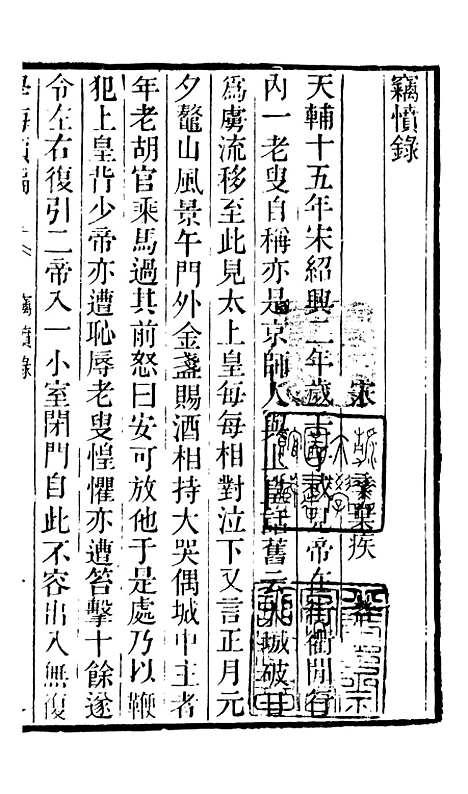 竊憤錄
宋 棄疾
天輔十五年宋紹興二年歲壬子 帝在街衢間行
內一老叟自稱亦是京師人與上皇話舊云 城破日
爲虜流移至此見太上皇每每相對泣下又言正月元
夕鼇山風景午門外金盞賜酒相持大哭偶城中主者
年老胡官乘馬過其前怒曰安可放他于是處乃以鞭
犯上皇背少帝亦遭恥辱老叟惶懼亦遭笞擊十餘遂
令左右復引二帝入一小室閉門自此不容出入無復
竊憤錄